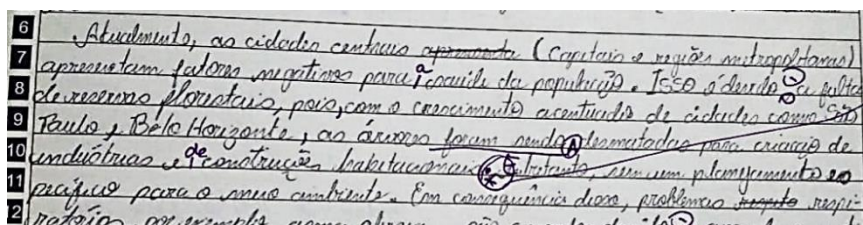 6 Atualmente, as cidades centrais apresenta (Capitais e regiões metropolitanas)
7 apresentam fatores negativos para a saúde da população. Isso é devido a falta
8 de reservas florestais, pois, com o crescimento acentuado de cidades como São
9 Paulo, Belo Horizonte, as árvores foram sendo desmatadas para criação de
10 indústrias e de construções habitacionais, entretanto, sem um planejamento es
11 pecífico para o meio ambiente. Em consequência disso, problemas respi-
12 ratórios, por exemplo